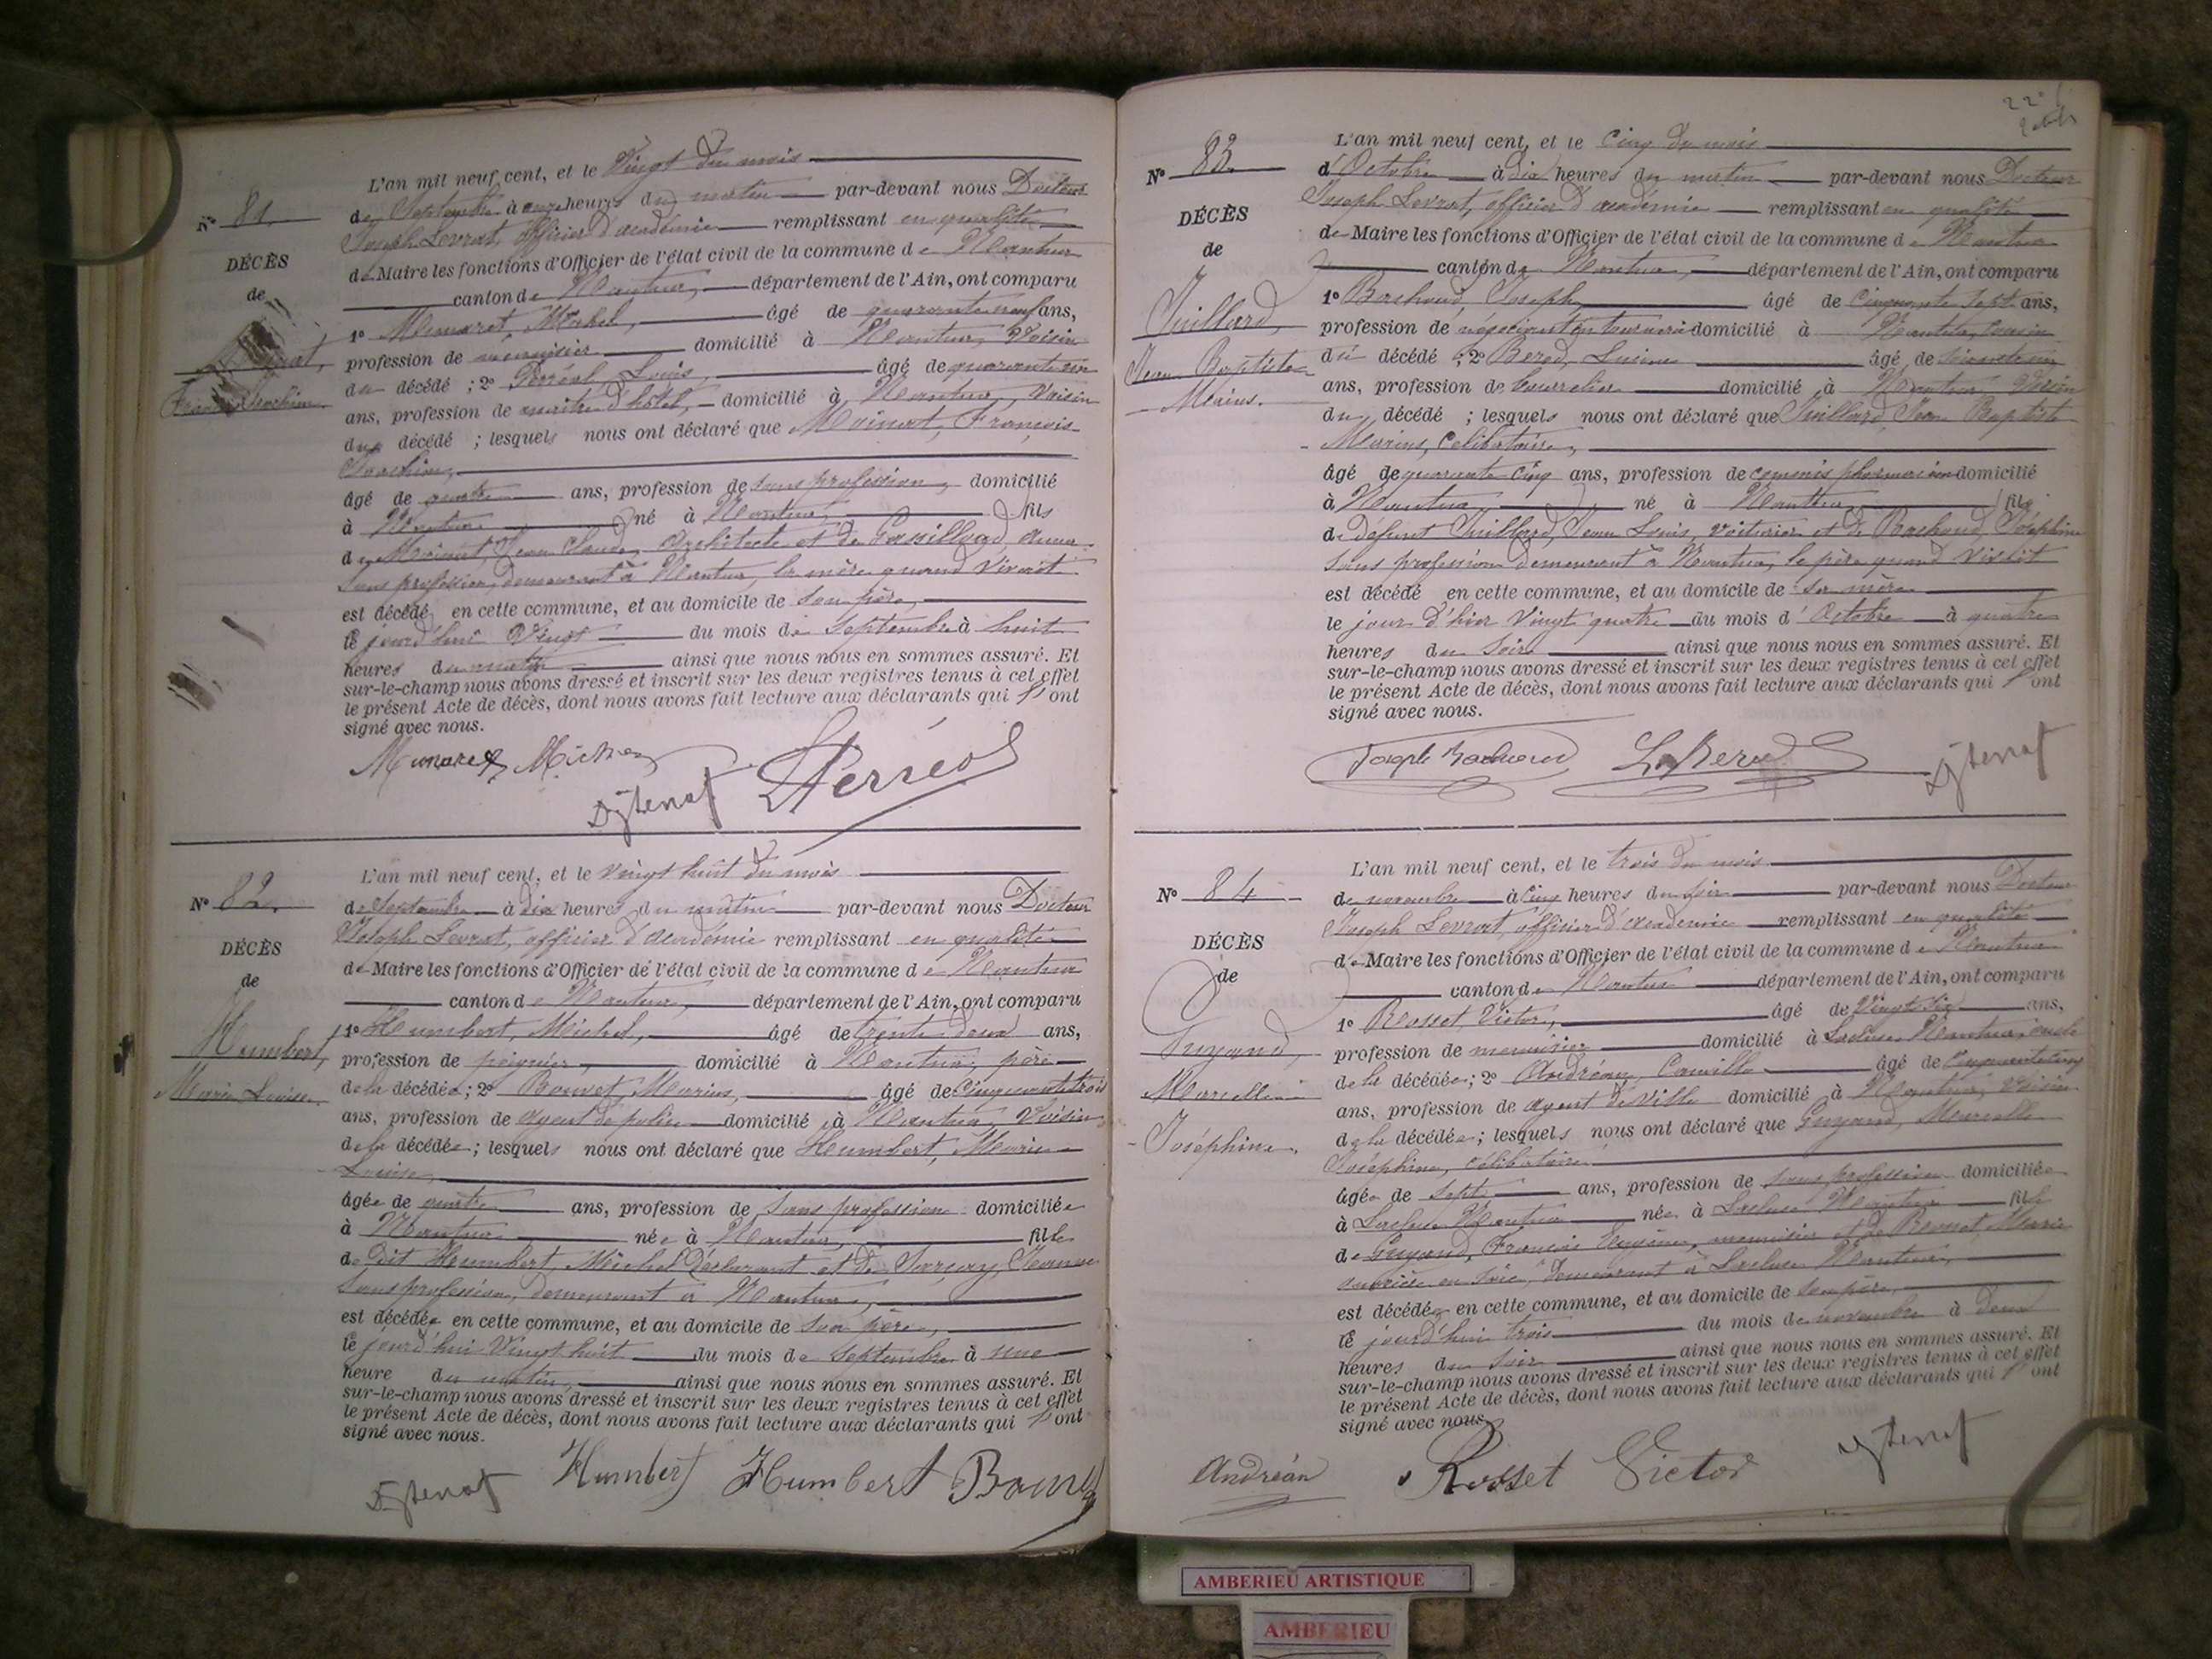 L'an mil neuf cent, et le Vingt du mois
N° 81. de Septembre à onze heures du matin par-devant nous Docteur
Joseph Levrat, officier d'académie remplissant en qualité
DÉCÈS
de Maire les fonctions d'Officier de l'état civil de la commune de Nantua
de
canton de Nantua, département de l'Ain, ont comparu
1° Munaret, Michel, âgé de quarante neuf ans,
profession de menuisier domicilié à Nantua, Voisin
du décédé ; 2° Perréol, Louis, âgé de quarante
François Joachim
ans, profession de maître d'hôtel, domicilié à Nantua, Voisin
du décédé ; lesquels nous ont déclaré que Moinat, François
Joachim,
âgé de quatre ans, profession de sans profession, domicilié
à Nantua né à Nantua, fils
de Moinat, Jean Claude, Architecte et de
sans profession, demeurant à Nantua, la mère quand vivait
est décédé en cette commune, et au domicile de son père,
le jourd'hui Vingt du mois de Septembre à huit
heures du matin ainsi que nous nous en sommes assuré. Et
sur-le-champ nous avons dressé et inscrit sur les deux registres tenus à cet effet
le présent Acte de décès, dont nous avons fait lecture aux déclarants qui l'ont
signé avec nous.
Munaret Michel
Perréol
L'an mil neuf cent, et le vingt huit du mois
N° 82. de Septembre à dix heures du matin par-devant nous Docteur
Joseph Levrat, officier d'Académie remplissant en qualité
DÉCÈS
de Maire les fonctions d'Officier de l'état civil de la commune de Nantua
de
canton de Nantua, département de l'Ain, ont comparu
Humbert,
1° Humbert, Michel, âgé de trente deux ans,
profession de peignier, domicilié à Nantua, père
Marie Louise.
de la décédée ; 2° Bouvet, Marius, âgé de Cinquante trois
ans, profession de Agent de police domicilié à Nantua, Voisin
de la décédée ; lesquels nous ont déclaré que Humbert, Marie
Louise,
âgée de quatre ans, profession de sans profession domiciliée
à Nantua née à Nantua, fille
de dit Humbert Michel Déclarant et de Jeanne
sans profession, demeurant à Nantua,
est décédée en cette commune, et au domicile de son père,
le jourd'hui Vingt huit du mois de Septembre à une
heure du matin, ainsi que nous nous en sommes assuré. Et
sur-le-champ nous avons dressé et inscrit sur les deux registres tenus à cet effet
le présent Acte de décès, dont nous avons fait lecture aux déclarants qui l'ont
signé avec nous.
Humbert Humbert Bouvet
L'an mil neuf cent, et le Cinq du mois
N° 83. d'Octobre à dix heures du matin par-devant nous Docteur
Joseph Levrat, officier d'académie remplissant en qualité
DÉCÈS
de Maire les fonctions d'Officier de l'état civil de la commune de Nantua
de
canton de Nantua, département de l'Ain, ont comparu
Juillard,
1° Bachoud, Joseph, âgé de Cinquante sept ans,
profession de négociant en tournerie domicilié à Nantua, Cousin
Jean Baptiste
du décédé ; 2° âgé de
Marius.
ans, profession de bourrelier domicilié à Nantua Voisin
du décédé ; lesquels nous ont déclaré que Juillard, Jean Baptiste
Marius, Célibataire,
âgé de quarante cinq ans, profession de commis pharmacien domicilié
à Nantua né à Nantua fils
de défunt Juillard, Jean Louis, voiturier et de Bachoud, Joséphine
sans profession demeurant à Nantua, le père quand vivait
est décédé en cette commune, et au domicile de sa mère
le jour d'hier Vingt quatre du mois d'Octobre à quatre
heures du Soir ainsi que nous nous en sommes assuré. Et
sur-le-champ nous avons dressé et inscrit sur les deux registres tenus à cet effet
le présent Acte de décès, dont nous avons fait lecture aux déclarants qui l'ont
signé avec nous.
Joseph Bachoud
L'an mil neuf cent, et le trois du mois
N° 84 de novembre à Cinq heures du soir par-devant nous Docteur
Joseph Levrat, officier d'académie remplissant en qualité
DÉCÈS
de Maire les fonctions d'Officier de l'état civil de la commune de Nantua
de
canton de Nantua département de l'Ain, ont comparu
Guyand,
1° Rosset, Victor, âgé de Vingt six ans,
profession de menuisier domicilié à Lacluse Nantua, oncle
Marcelle
de la décédée ; 2° Andréan, Camille âgé de Cinquante cinq
ans, profession de Agent de Ville domicilié à Nantua, Voisin
Joséphine.
de la décédée ; lesquels nous ont déclaré que Guyand, Marcelle
Joséphine, célibataire
âgée de Sept ans, profession de sans profession domiciliée
à Lacluse Nantua née à Lacluse Nantua fille
de Guyand, François Eugène, menuisier et de Rosset Marie
ouvrière en soie, demeurant à Lacluse Nantua,
est décédée en cette commune, et au domicile de son père,
le jourd'hui trois du mois de novembre à deux
heures du soir ainsi que nous nous en sommes assuré. Et
sur-le-champ nous avons dressé et inscrit sur les deux registres tenus à cet effet
le présent Acte de décès, dont nous avons fait lecture aux déclarants qui l'ont
signé avec nous.
Andréan Rosset Victor
AMBERIEU ARTISTIQUE
AMBERIEU